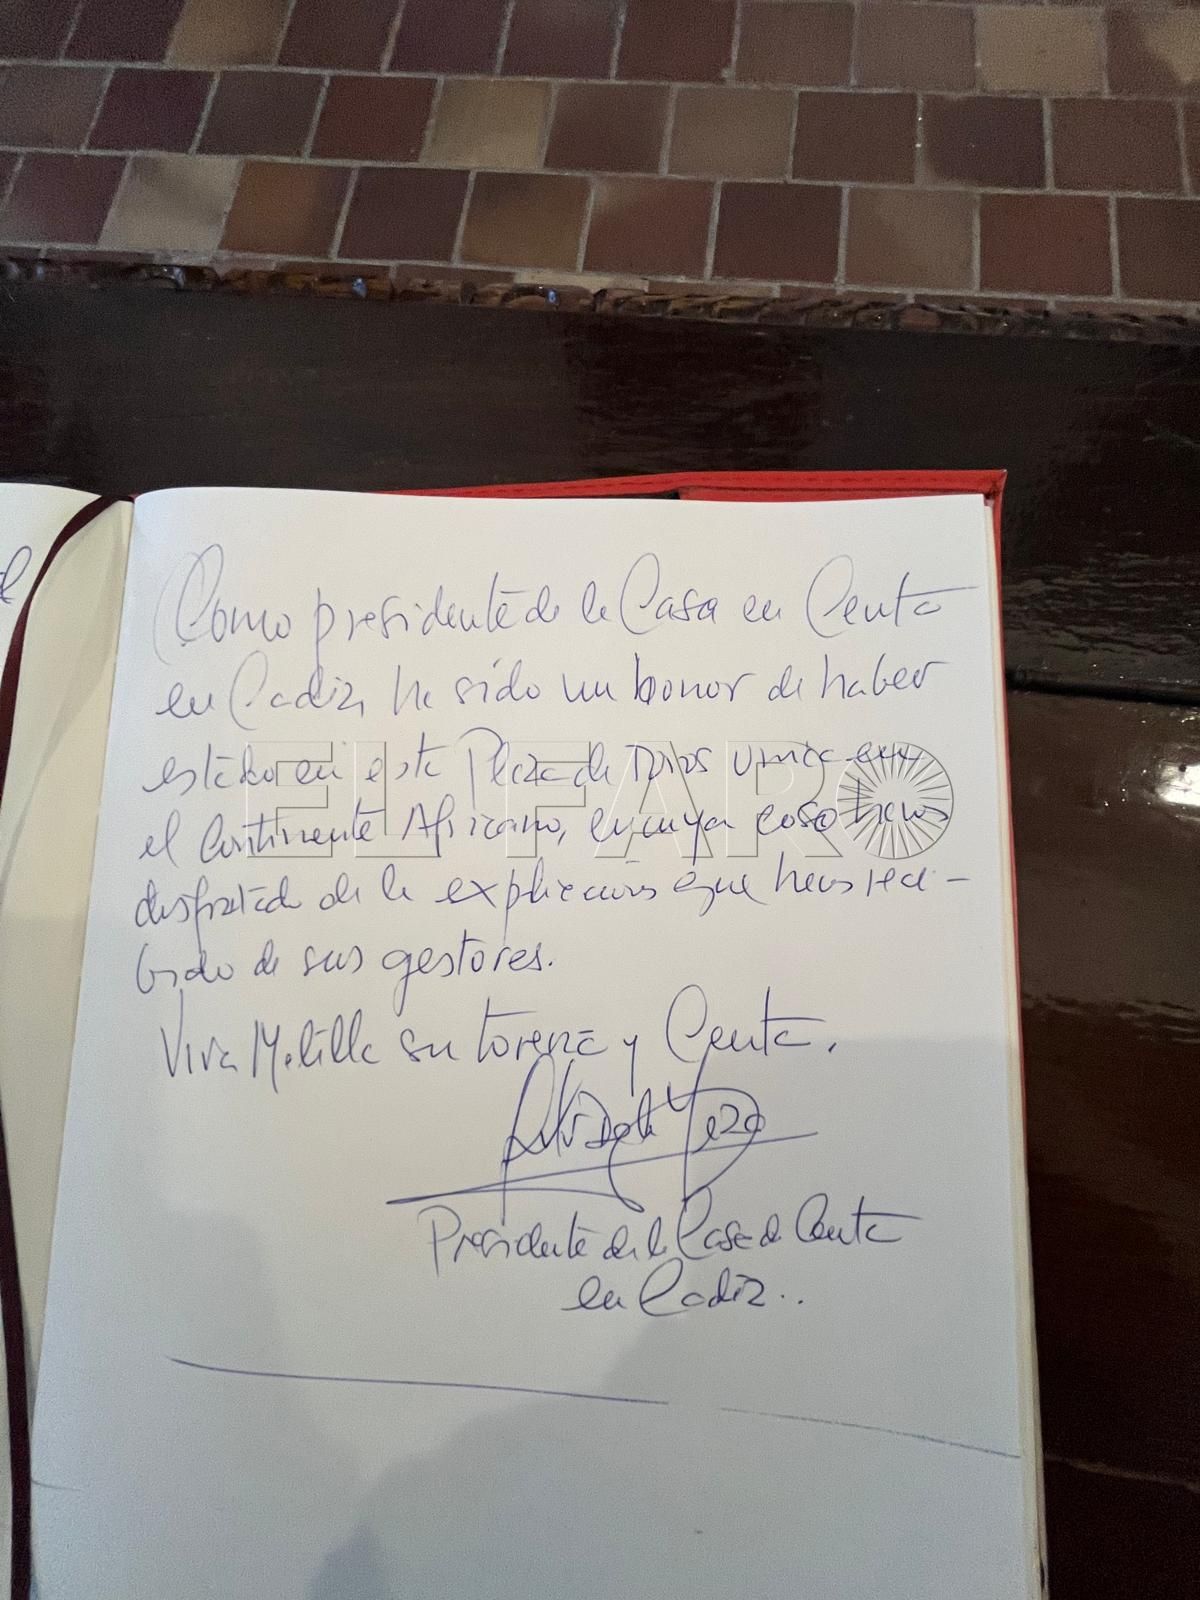 Como presidente de la Casa en Ceuta
en Cadiz, ha sido un honor de haber
estado en esta Plaza de Toros unica en
el Continente Africano, en cuya coso hemos
disfrutado de la explicación que hemos reci-
bido de sus gestores.
Viva Melilla su torería y Ceuta.
Presidente de la Casa de Ceuta
en Cadiz..
EL FARO